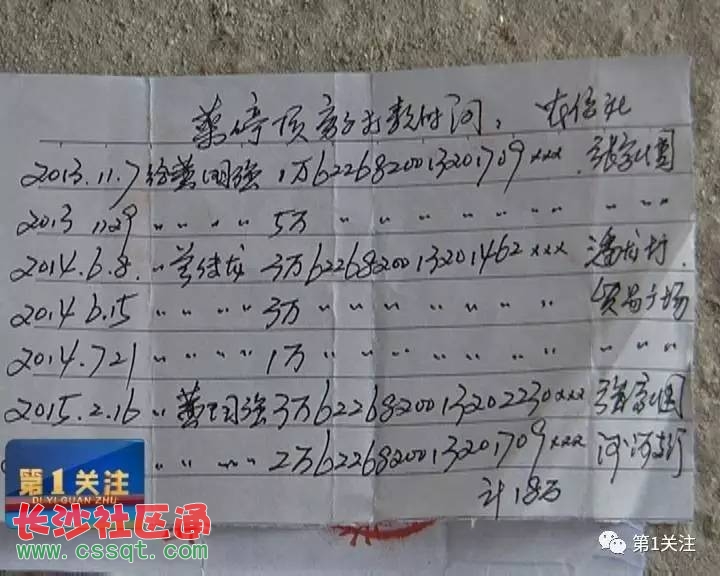 打款时间: 农信社
2013.11.7 给 强 1万6226820013201709xxx 张家围
2013 11.29 〃 〃 〃 〃 5万 〃 〃 〃 〃 〃 〃 〃 〃 〃 〃 〃
2014.6.8. 〃 龙 3万6226820013201462xxx 潘龙村.
2014 6.15 〃 〃 〃 〃 3万 〃 〃 〃 〃 〃 〃 〃 贸易市场
2014.7.21 〃 〃 〃 〃 1万 〃 〃 〃 〃 〃 〃 〃 〃 〃 〃
2015.2.16 〃 强 3万6226820013202230xxx 张家围
〃 〃 〃 〃 2万6226820013201709xxx
计18万
第1关注
DI YI GUAN ZHU
长沙社区通
www.cssqt.com
第1关注